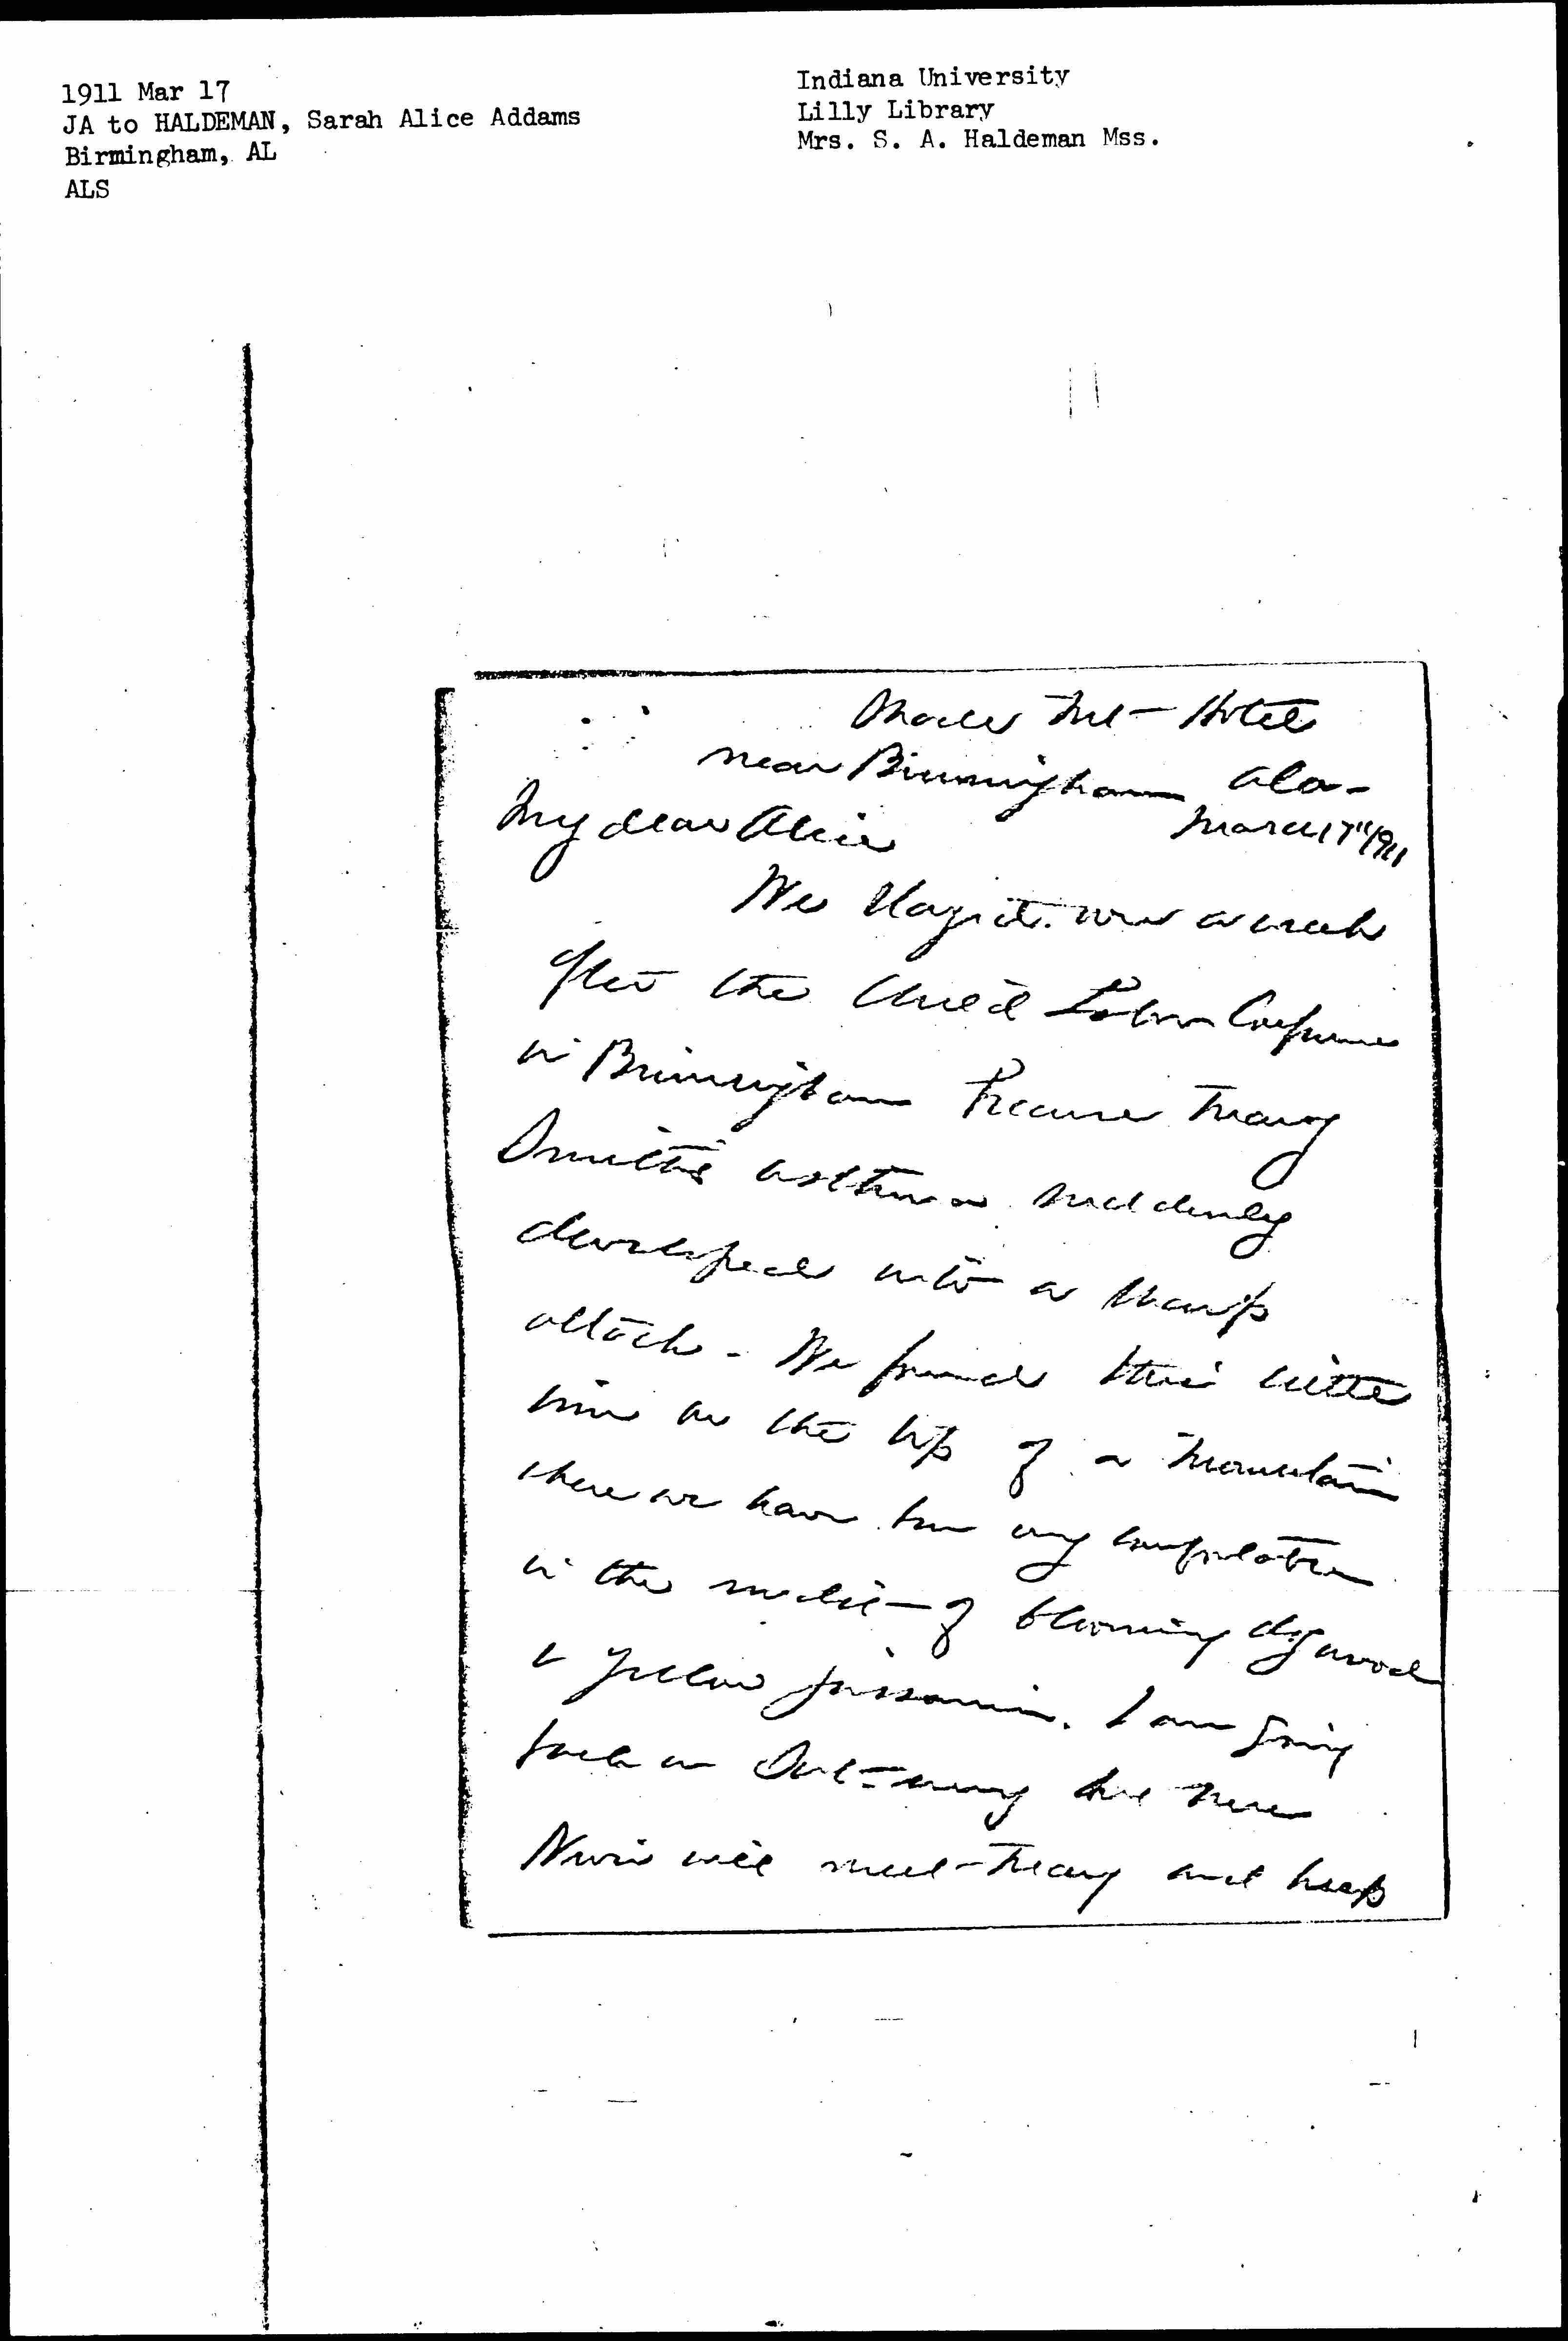 1911 Mar 17
JA to HALDEMAN, Sarah Alice Addams
Birmingham, AL
ALS
Indiana University
Lilly Library
Mrs. S. A. Haldeman Mss.
Shades Mt- Hotel
near Birmingham Ala-
March 17" 1911
My dear Alice
We stayed over a week
after the Child Labor Conference
in Birmingham because Mary
Smith's asthma suddenly
developed into a sharp
attack - We found this little
inn on the top of a mountain
where we have been very comfortable
in the midst of blooming dogwood
& yellow jassamin. I am going
back on Sat-
will meet Mary and keep